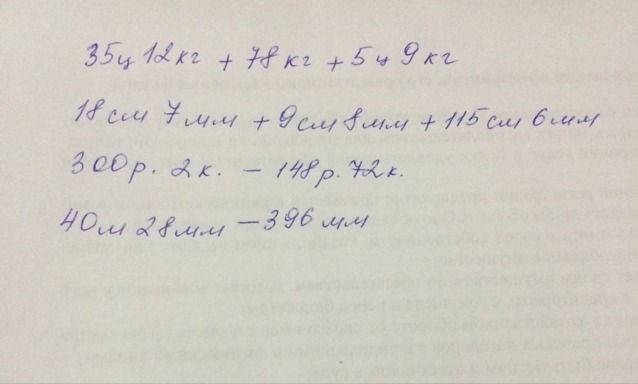 35ц 12кг + 78кг + 5ц 9кг
18см 7мм + 9см 8мм + 115см 6мм
300р. 2к. - 148р. 72к.
40м 28мм - 396мм